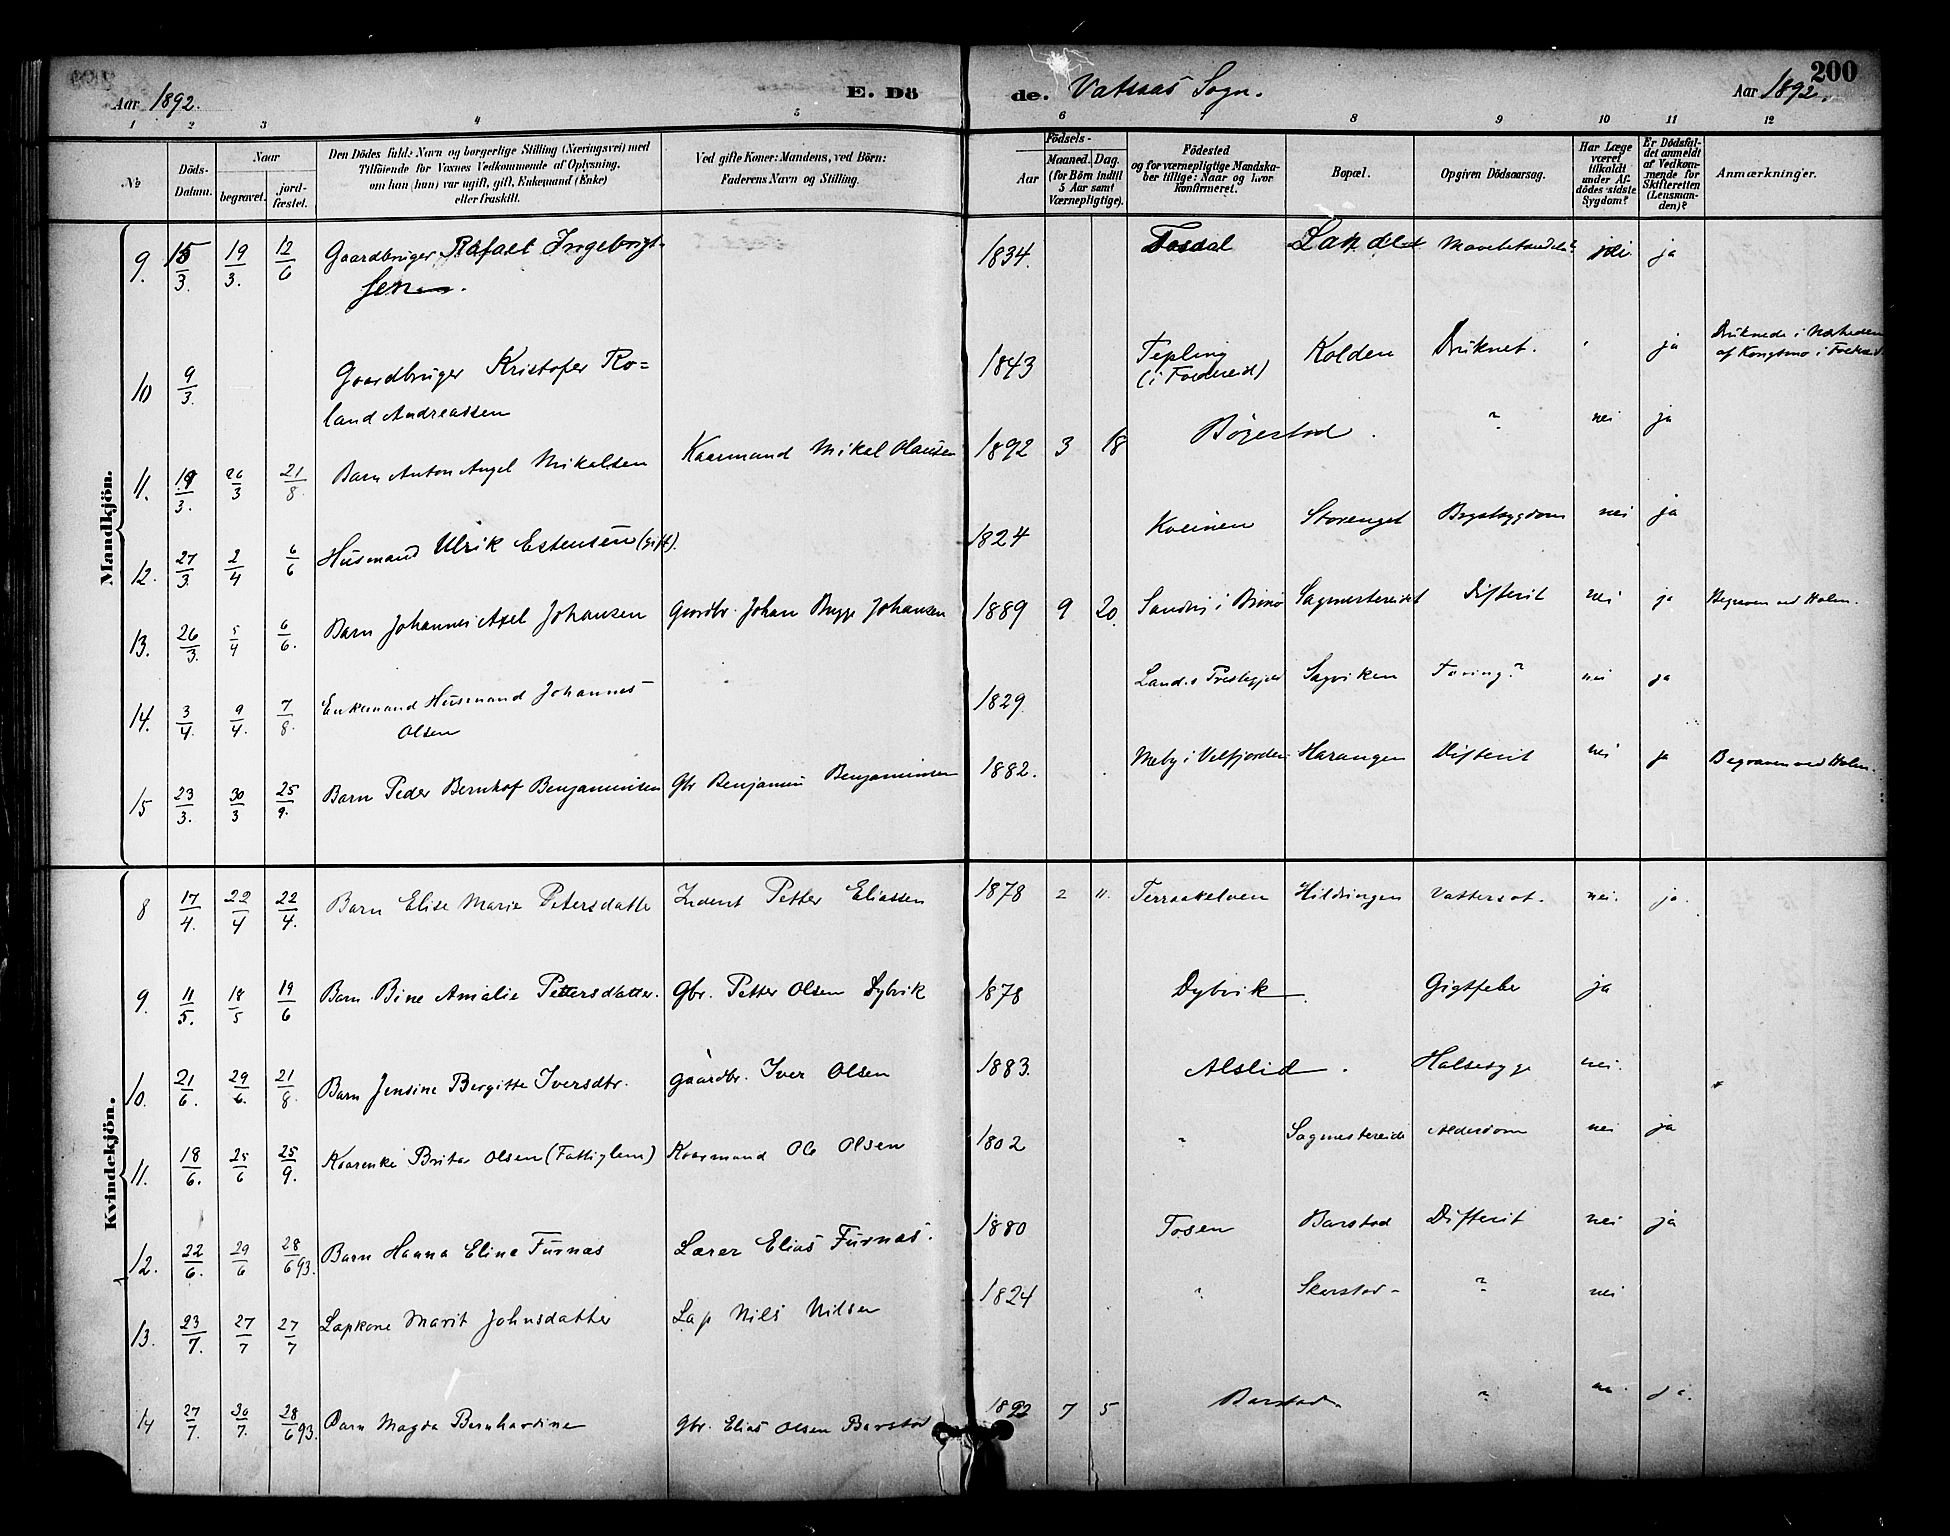 Aar 1892.
E. Dö
de. Vatnaas Sogn.
Aar 1892.
200
1 2 3 4 5 6 7 8 9 10 11 12
№
Döds-Datum.
Naar
begravet.
jord-fæstet.
Den Dödes fulde Navn og borgerlige Stilling (Næringsvei) med
Tilföiende for Voxnes Vedkommende af Oplysning,
om han (hun) var ugift, gift, Enkemand (Enke)
eller fraskilt.
Ved gifte Koner: Mandens, ved Börn:
Faderens Navn og Stilling.
Födsels-
Aar
Maaned. Dag.
(for Börn indtil
5 Aar samt
Værnepligtige).
Födested
og for værnepligtige Mandska-
ber tillige: Naar og hvor
konfirmeret.
Bopæl.
Opgiven Dödsaarsag.
Har Læge
været
tilkaldt
under Af-
dödes sidste
Sygdom?
Er Dödsfal-
det anmeldt
af Vedkom-
mende for
Skifteretten
(Lensman-
den)?
Anmærkninger.
Mandkjön.
9. 15/3. 19/3. 12/6 Gaardbruger Rafael Ingebrigt- 1834. Tosdal ja
sen.
10 9/3. Gaardbruger Kristofer Ro= 1843 Tepling Kolden Druknet. ja Druknede i Nærheden
land Andreassen (i Foldereid) af Kongsmo i Foldereid
11. 19/3. 26/3 21/8. Barn Anton Angel Mikalsen Kaarmand Mikal Hansen 1892 3 18 Børestad. " nei ja
12. 27/3. 2/4 6/6 Husmand Ulrik Estensen (gift). 1824 Storenget Brystsygdom nei ja
13. 26/3. 5/4 6/6. Barn Johannes Axel Johansen Gaardbr. Johan Bugge Johansen 1889 9 20. Sandvi i Brønø Sagmestereidet Difterit nei ja Begraven ved Holm.
14. 3/4. 9/4. 7/8. Enkemand Husmand Johannes 1829. Sagviken Tæring? nei ja
Olsen
15 23/3. 30/3 25/9. Barn Peder Bernhof Benjaminsen Gbr Benjamin Benjaminsen 1882. Meby i Velfjorden Harangen Difterit nei ja Begraven ved Holm.
Kvindekjön.
8 17/4. 22/4 22/4. Barn Elise Marie Petersdatter Inderst Petter Eliassen 1878 2 11. Terraakelven Hildringen Vattersot. nei. ja.
9. 11/5. 18/5 19/6 Barn Bine Amalie Pettersdatter. Gbr. Petter Olsen Dybvik 1878 Dybvik. Gigtfeber ja
10. 21/6. 29/6. 21/8 Barn Jensine Bergitte Iversdtr. Gaardbr. Iver Olsen 1883. Alslid. Halsesyge nei.
11. 18/6. 25/6 25/9. Kaarenke Brita Olsen (Fattiglem) Kaarmand Ole Olsen 1802 " Sagmestereide Alderdom nei ja
12. 22/6. 29/6 28/6 93. Barn Hanna Elina Furnæs Lærer Elias Furnæs. 1880 Tosen Barstad Difterit nei ja
13. 23/7. 27/7 27/7 Lapkone Marit Johnsdatter Lap Nils Nilsen 1824 " Skarstad ? nei
14 27/7. 30/7. 28/6 93. Barn Magda Bernhardine Gbr. Elias Olsen Barstad 1892 7 5 Barstad. " nei ja.